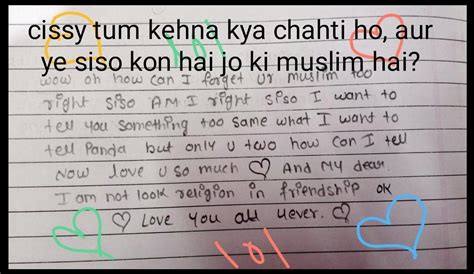 cissy tum kehna kya chahti ho, aur
lol
ye siso kon hai jo ki muslim hai?
wow oh how can I forget ur muslim too
right siso AM I right siso I want to
tell you something too same what I want to
tell Panda but only u two how can I tell
Now love u so much And My dear
I am not look religion in friendship ok
Love You all 4ever.
lol